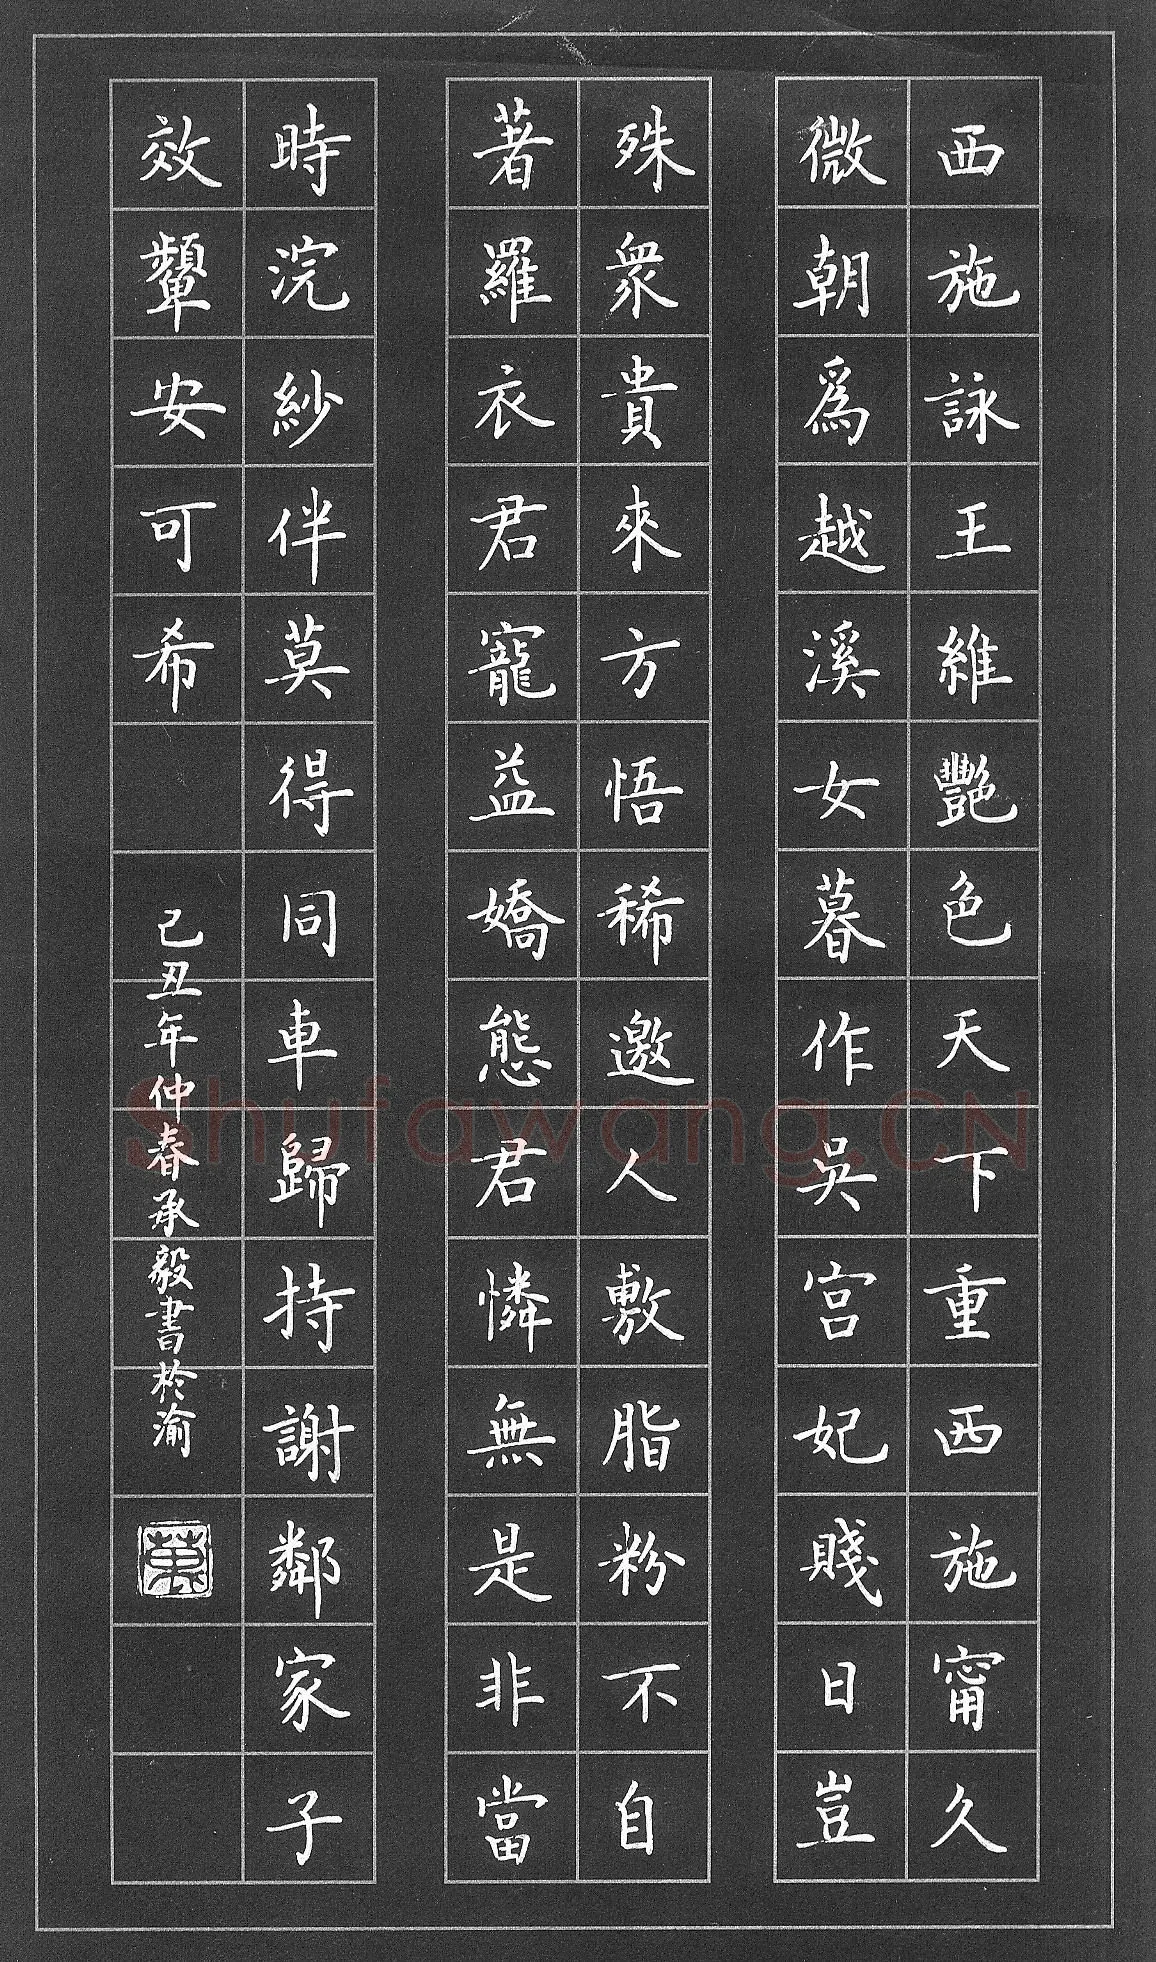 西施詠王維艷色天下重西施甯久
微朝爲越溪女暮作吳宮妃賤日豈
殊衆貴來方悟稀邀人敷脂粉不自
著羅衣君寵益嬌態君憐無是非當
時浣紗伴莫得同車歸持謝鄰家子
效顰安可希
己丑年仲春承毅書於渝
Shufawang.CN